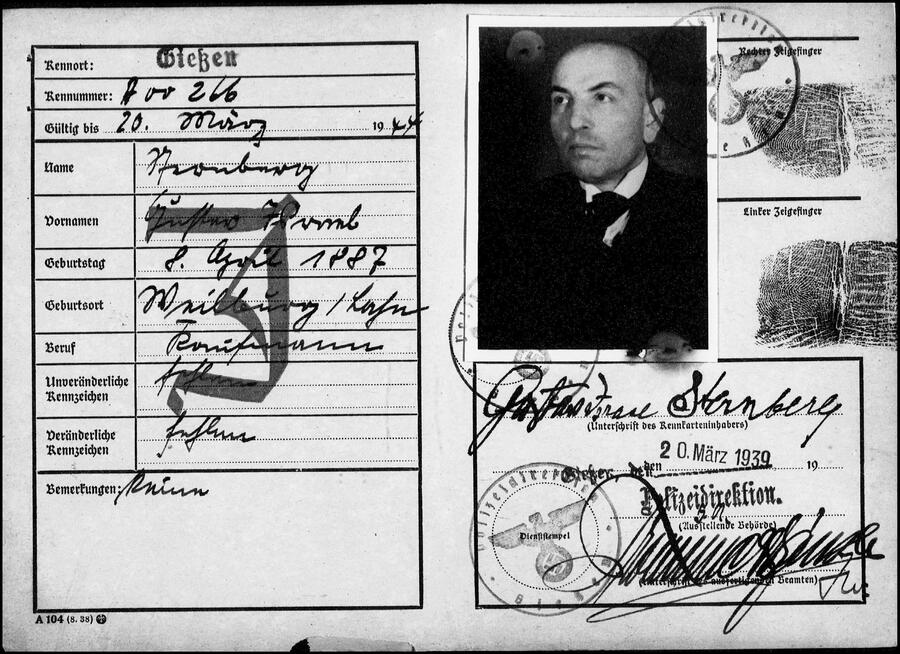 Kennort: Gießen
Kennummer: A 00 266
Gültig bis 20. März 1944
Name Sternberg
Vornamen Gustav Israel
Geburtstag 8. April 1887
Geburtsort Weilburg / Lahn
Beruf Kaufmann
Unveränderliche Kennzeichen fehlen
Veränderliche Kennzeichen fehlen
Bemerkungen: Keine
A 104 (8. 38)
J
Rechter Zeigefinger
Linker Zeigefinger
Gustav Israel Sternberg
(Unterschrift des Kennkarteninhabers)
Gießen, den 20. März 1939 19
Polizeidirektion.
(Ausstellende Behörde)
Polizeidirektion
Dienststempel
Gießen
(Unterschrift des ausfertigenden Beamten)